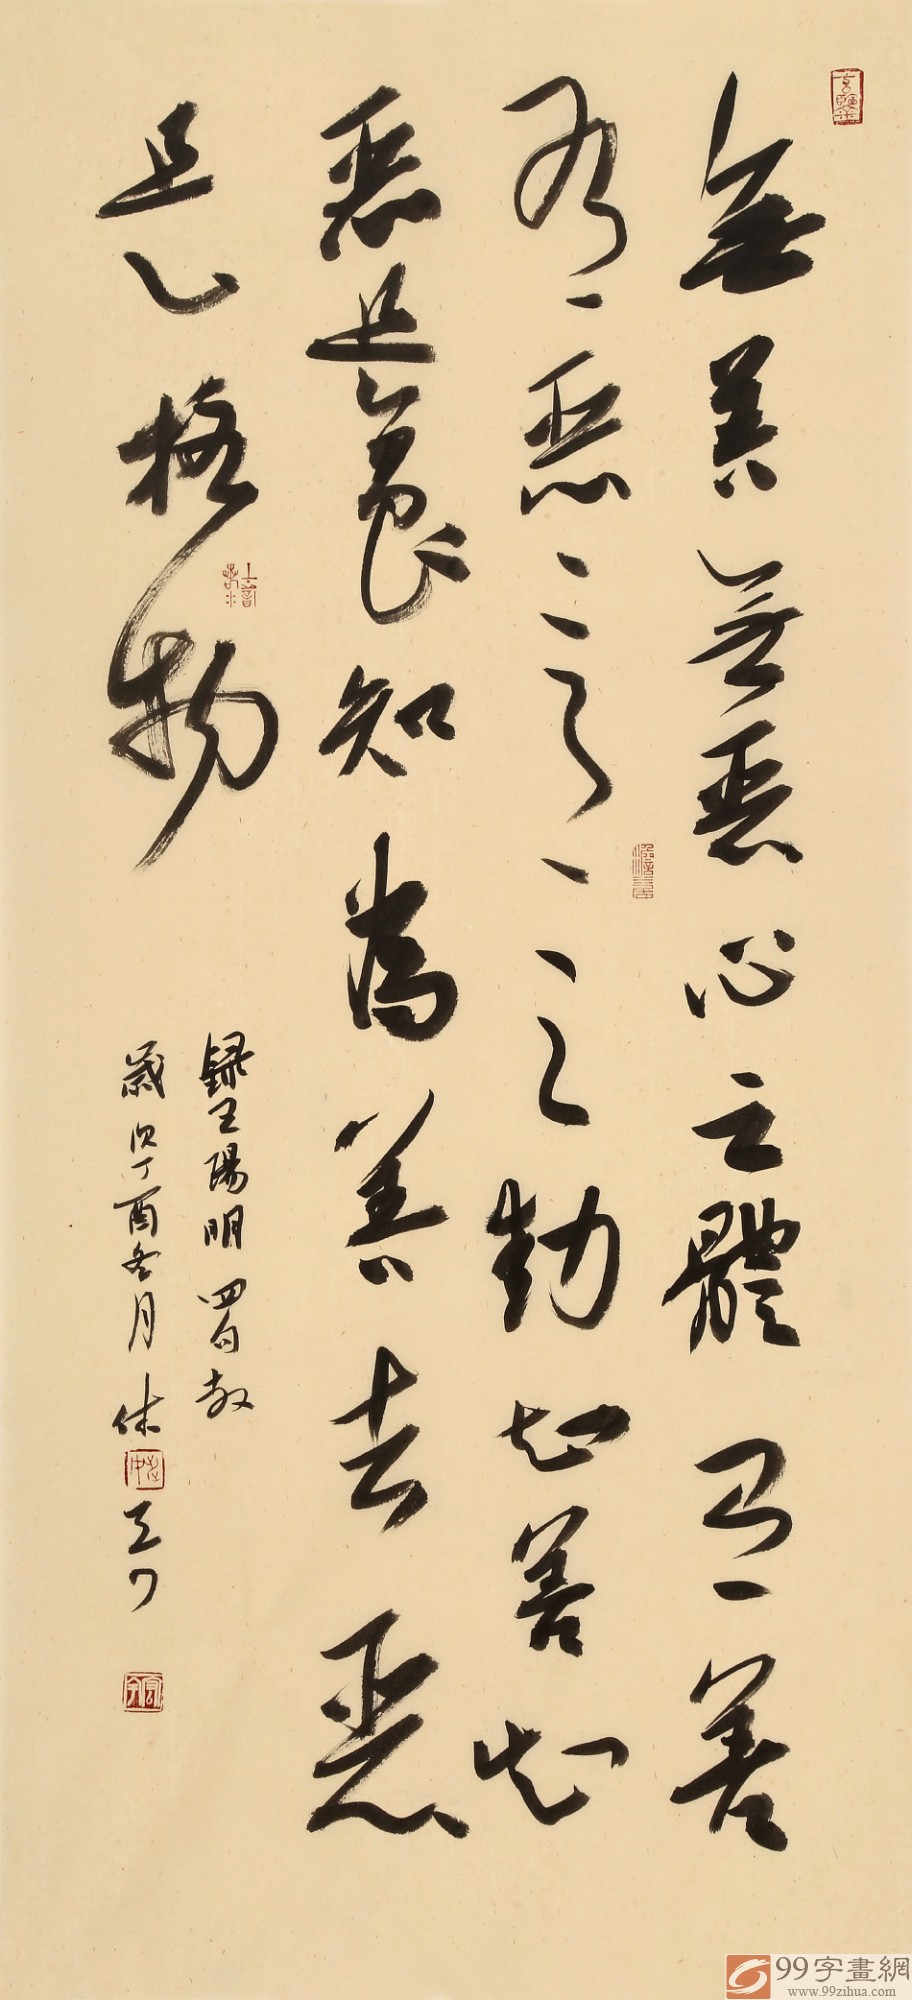 無善無惡心之體有善
有惡意之動知善知
惡是良知為善去惡
是格物
錄王陽明四句教
歲次丁酉冬月
99字畫網
www.99zihua.com